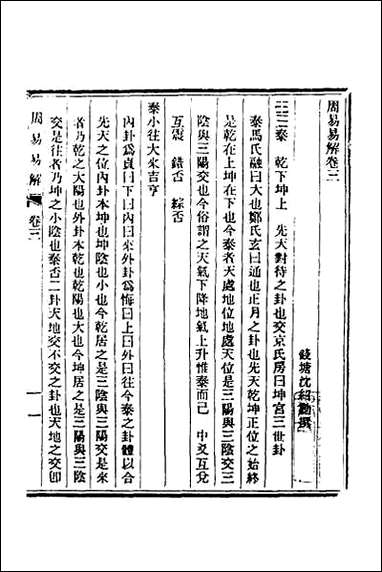 周易易解卷三
錢塘沈紹勳撰
泰 乾下坤上 先天對待之卦也交京氏房曰坤宮三世卦
泰馬氏融曰大也鄭氏玄曰通也正月之卦也先天乾坤正位之始終
是乾在上坤在下也今泰者天處地位地處天位是三陽與三陰交三
陰與三陽交也今俗謂之天氣下降地氣上升惟泰而已 中爻互兌
互震 錯否 綜否
泰小往大來吉亨
內卦爲貞曰下曰內曰來外卦爲悔曰上曰外曰往今泰之卦體以合
先天之位內卦本坤也坤陰也小也今乾居之是三陰與三陽交是來
者乃乾之大陽也外卦本乾也乾陽也大也今坤居之是三陽與三陰
交是往者乃坤之小陰也泰否二卦天地交不交之卦也天地之交卽
周易易解 卷三 一